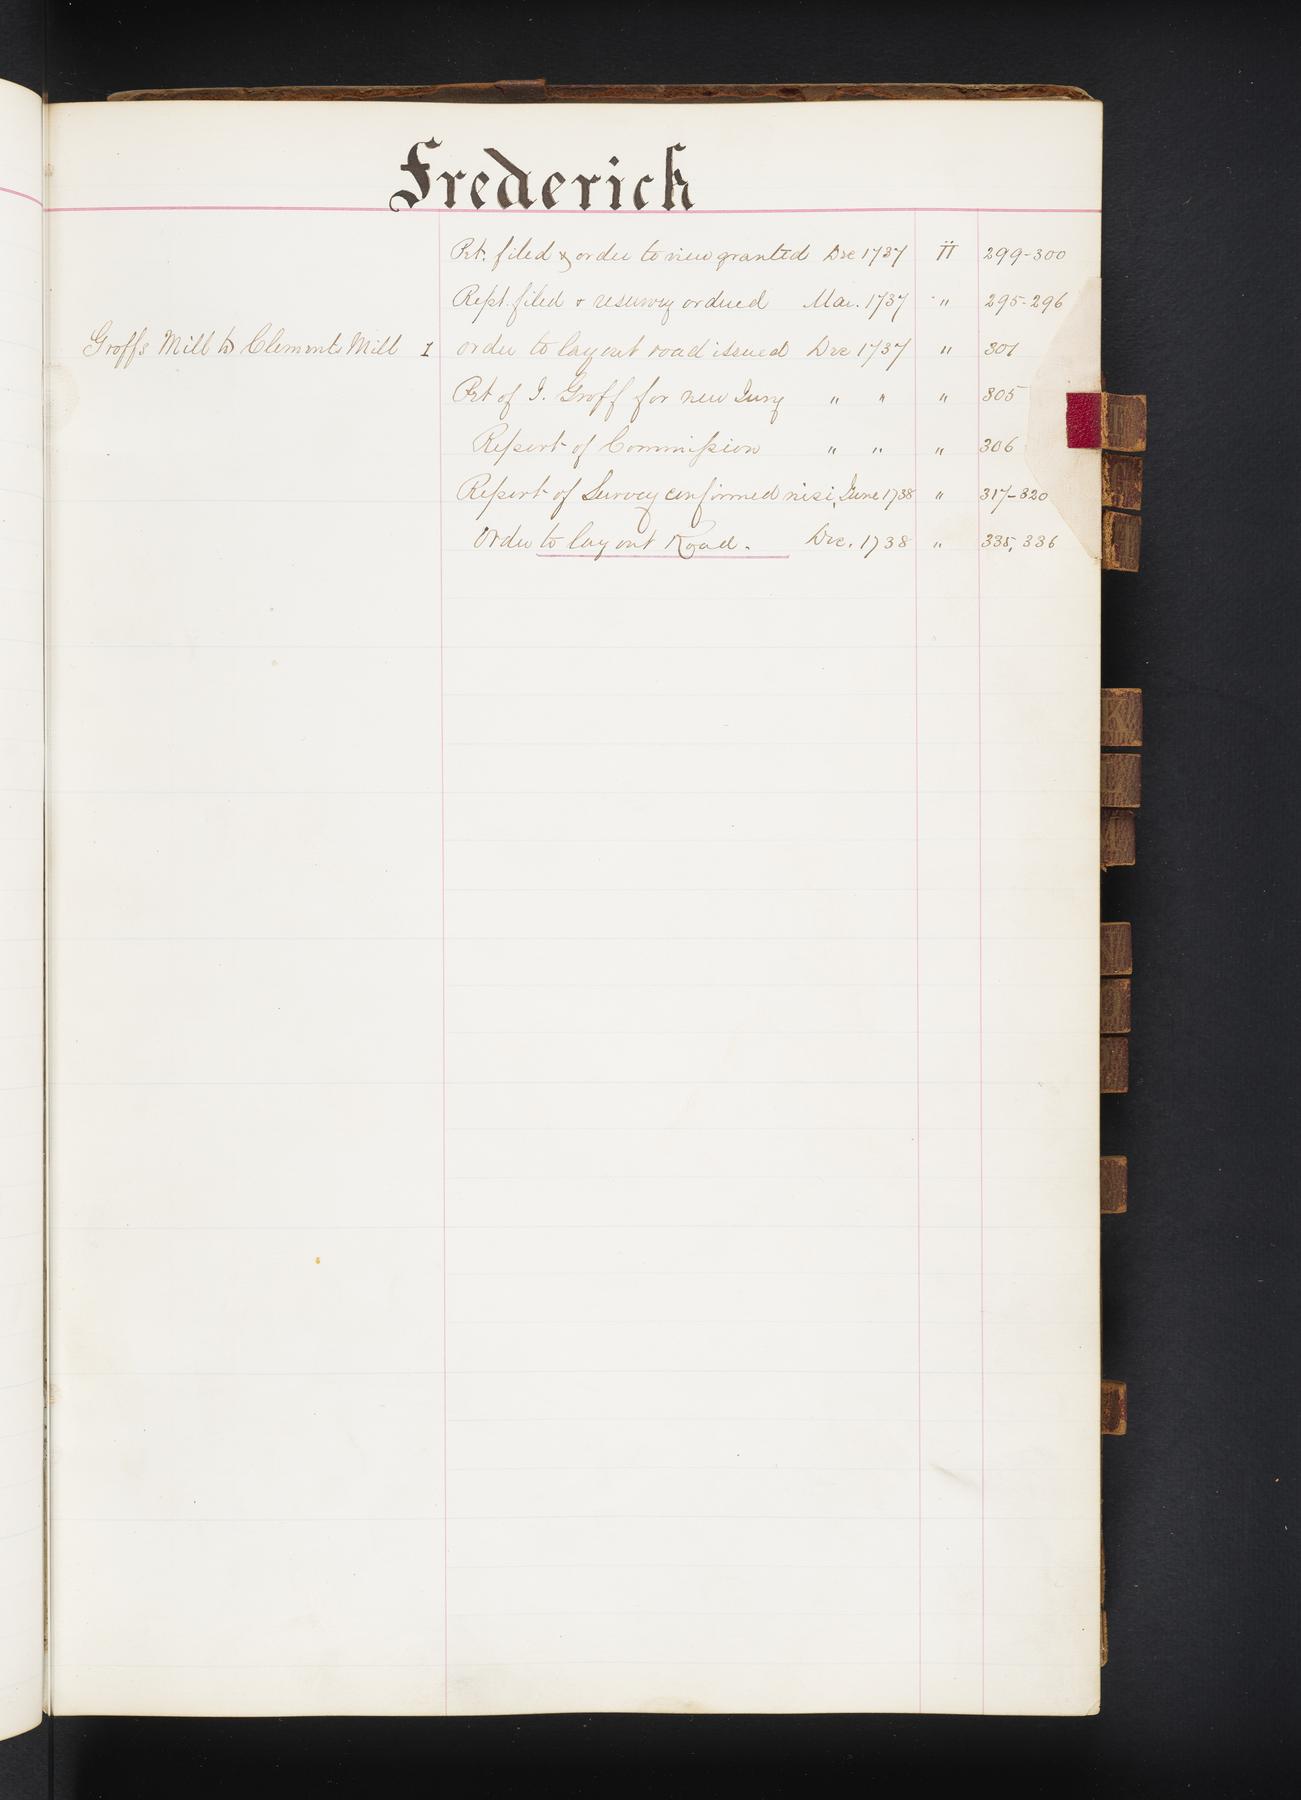 Frederick
Pet. filed & order to view granted Dec 1737 II 299-300
Rept. filed & resurvey ordered Mar. 1737 " 295-296
Groffs Mill to Clements Mill 1 order to lay out road issued Dec 1737 " 301
Pet of J. Groff for new Jury " " " 305
Report of Commission " " " 306
Report of Survey confirmed nisi, June 1738 " 317-320
Order to lay out Road. Dec. 1738 " 335, 336